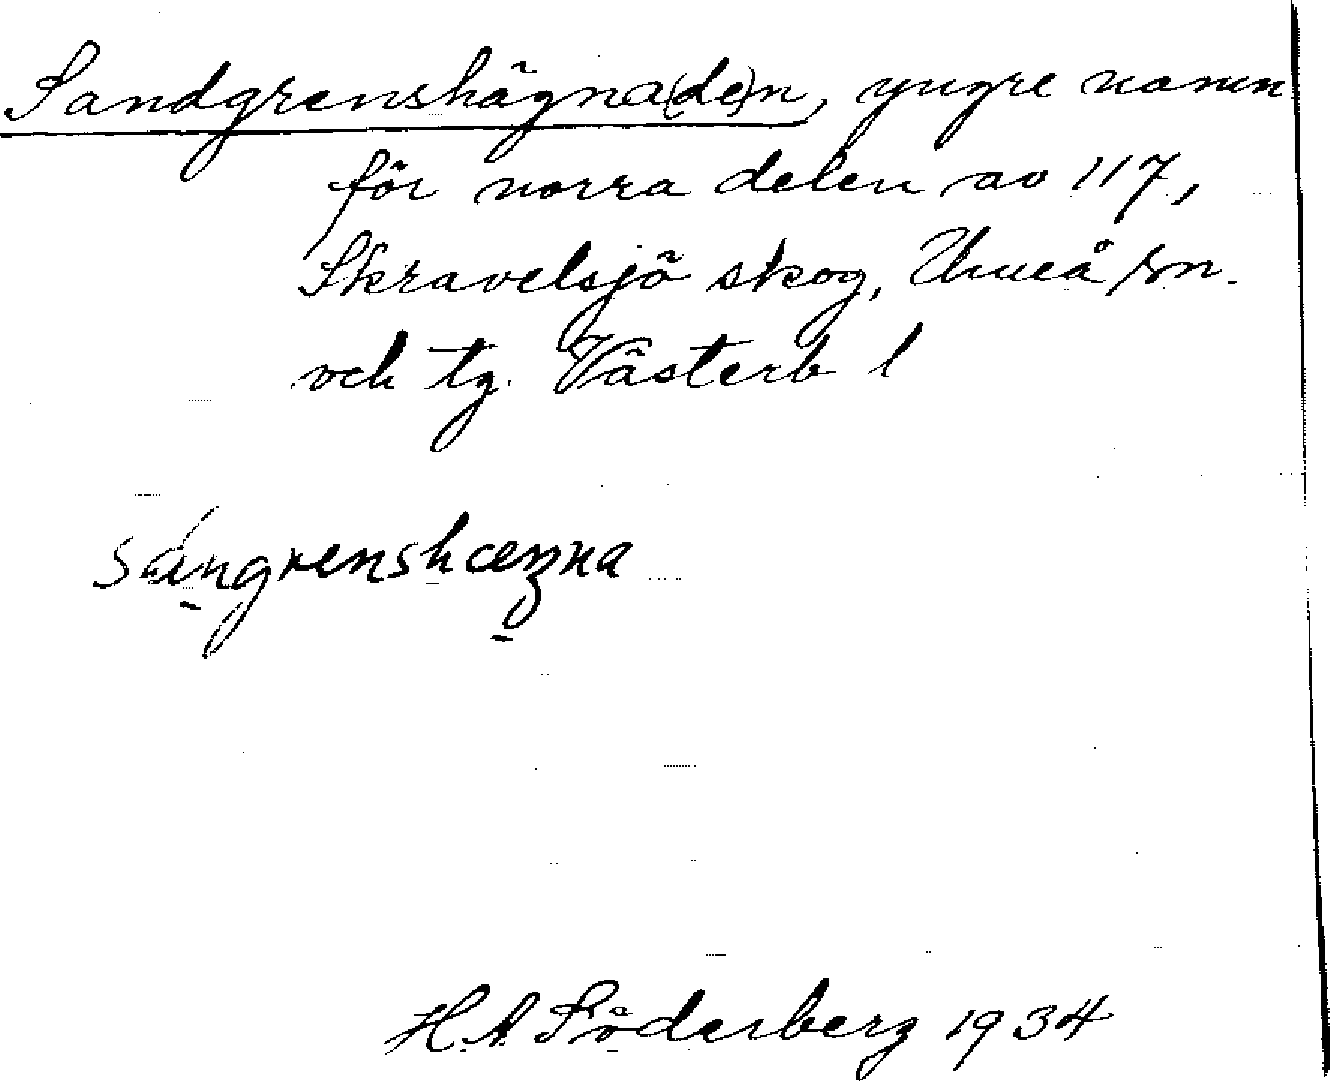 Sandgrenshägna(de)n, yngre namn
för norra delen av 117,
Skravelsjö skog, Umeå sn.
och tg. Västerb l
sángrenshæŋna
H.A. Söderberg 1934